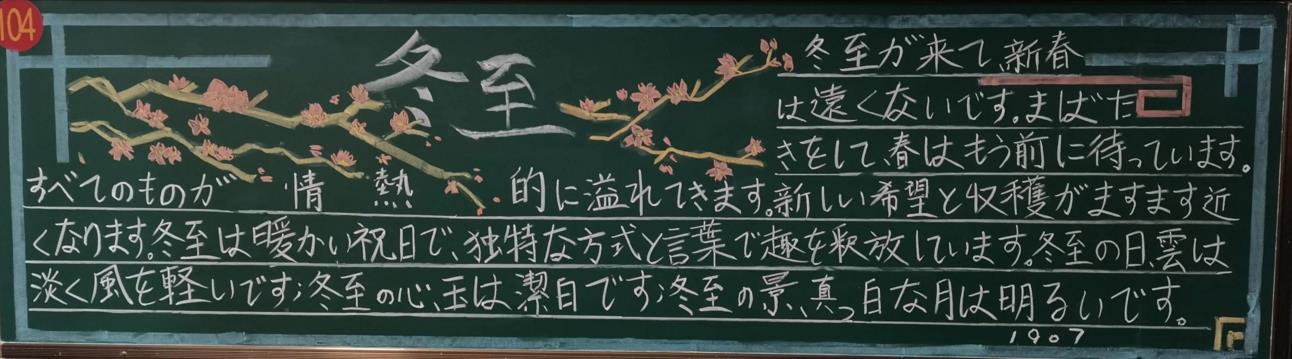 104
冬至
冬至が来て、新春
は遠くないです。まばた
きをして、春はもう前に待っています。
すべてのものが情熱的に溢れてきます。新しい希望と収穫がますます近
くなります。冬至は暖かい祝日で、独特な方式と言葉で趣を釈放しています。冬至の日、雲は
淡く風を軽いです;冬至の心、玉は潔白です;冬至の景、真っ白な月は明るいです。
1907